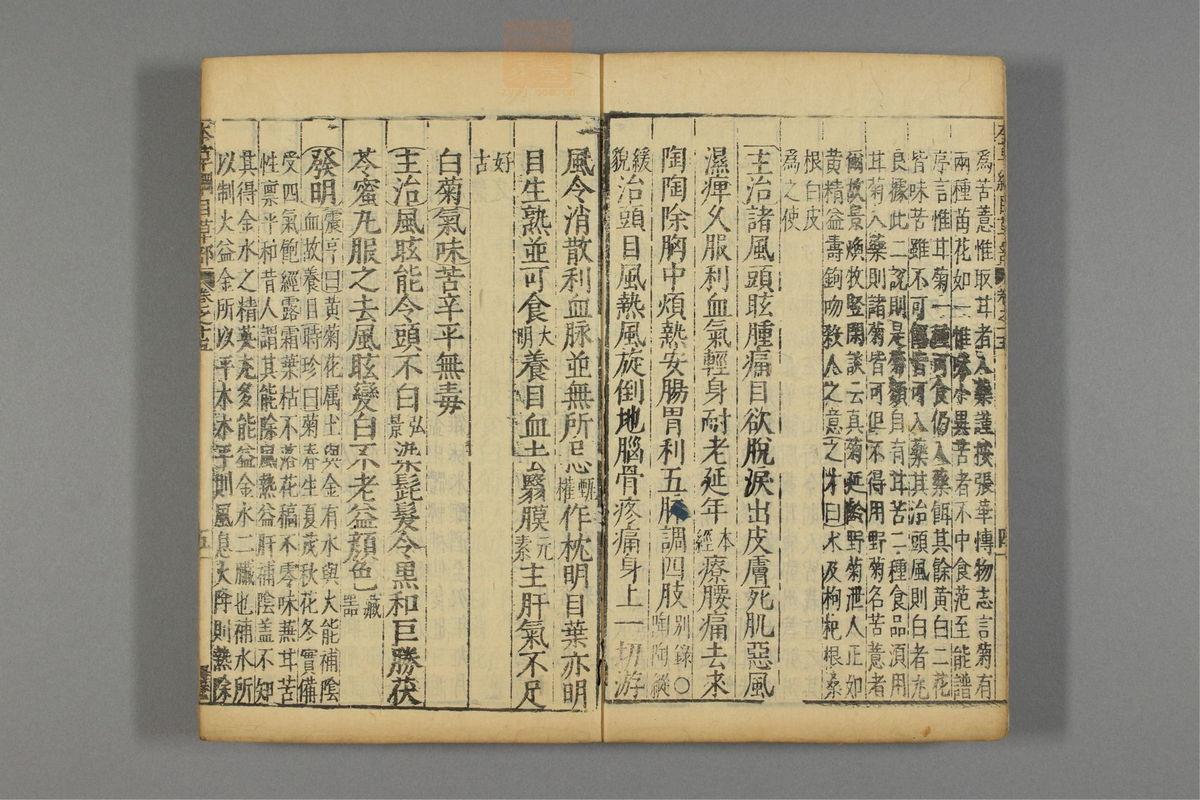 為苦薏惟取甘者入藥謹按張華博物志言菊有
兩種苗花如一惟味小異苦者不中食范至能譜
序言惟甘菊一種可食仍入藥餌其餘黃白二花
皆味苦雖不可餌皆可入藥其治頭風則白者尤
良據此二說則是菊類自有甘苦二種食品須用
甘菊入藥則諸菊皆可但不得用野菊名苦薏者
爾故景煥牧豎閑談云真菊延齡野菊泄人正如
黃精益壽鉤吻殺人之意之才曰术及枸杞根桑
根白皮
為之使
主治諸風頭眩腫痛目欲脫淚出皮膚死肌惡風
濕痺久服利血氣輕身耐老延年本經療腰痛去來
陶陶除胸中煩熱安腸胃利五脉調四肢別錄○陶陶縱
緩貌治頭目風熱風旋倒地腦骨疼痛身上一切游
風令消散利血脉並無所忌甄權作枕明目葉亦明
目生熟並可食大明養目血去翳膜元素主肝氣不足
好古
白菊氣味苦辛平無毒
主治風眩能令頭不白弘景染髭髮令黑和巨勝茯
苓蜜丸服之去風眩變白不老益顏色藏器
發明震亨曰黃菊花屬土與金有水與火能補陰
血故養目時珍曰菊春生夏茂秋花冬實備
受四氣飽經露霜葉枯不落花槁不零味兼甘苦
性禀平和昔人謂其能除風熱益肝補陰盖不知
其得金水之精英尤多能益金水二臟也補水所
以制火益金所以平木木平則風息火降則熱除